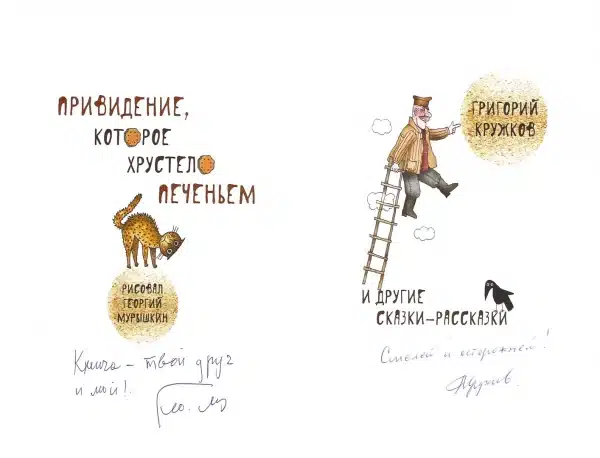 ПРИВИДЕНИЕ,
КОТОРОЕ
ХРУСТЕЛО
ПЕЧЕНЬЕМ
РИСОВАЛ
ГЕОРГИЙ
МУРЫШКИН
Книга – твой друг
и мой!
ГРИГОРИЙ
КРУЖКОВ
И ДРУГИЕ
СКАЗКИ-РАССКАЗКИ
Смелей и осторожней!